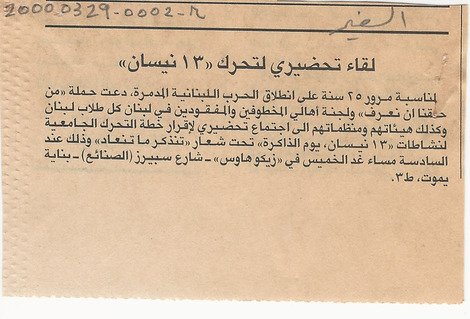 20000329-0002-M
السفير
لقاء تحضيري لتحرك «١٣ نيسان»
لمناسبة مرور ٢٥ سنة على انطلاق الحرب اللبنانية المدمرة، دعت حملة «من
حقنا ان نعرف» ولجنة أهالي المخطوفين والمفقودين في لبنان كل طلاب لبنان
وكذلك هيئاتهم ومنظماتهم الى اجتماع تحضيري لإقرار خطة التحرك الجامعية
لنشاطات «١٣ نيسان، يوم الذاكرة» تحت شعار «تنذكر ما تنعاد» وذلك عند
السادسة مساء غد الخميس في «زيكو هاوس» ـ شارع سبيرز (الصنائع) ـ بناية
يموت، ط٣.